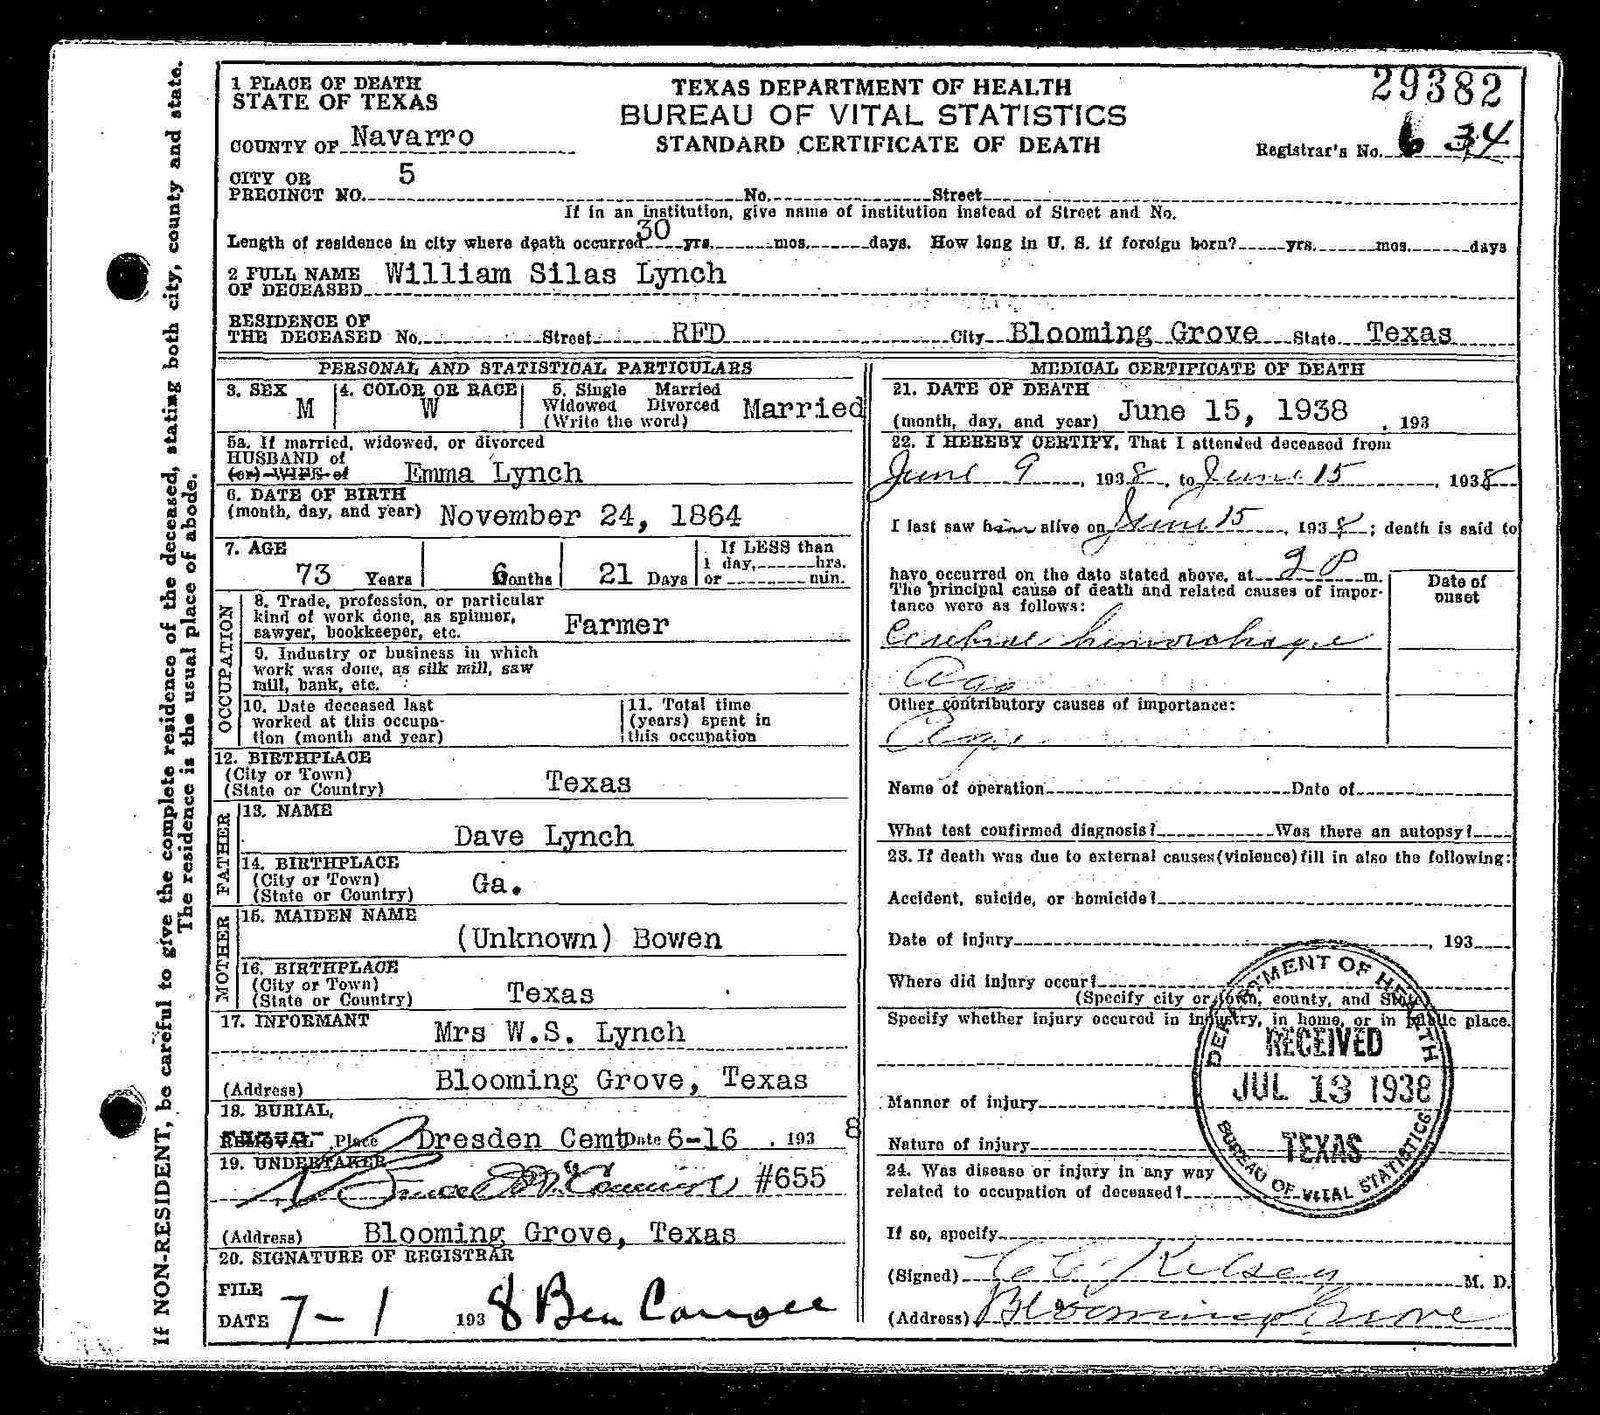 29382
1 PLACE OF DEATH
STATE OF TEXAS
COUNTY OF Navarro
TEXAS DEPARTMENT OF HEALTH
BUREAU OF VITAL STATISTICS
STANDARD CERTIFICATE OF DEATH
Registrar's No. 6 34
CITY OR
PRECINCT NO. 5 No. Street
If in an institution, give name of institution instead of Street and No.
Length of residence in city where death occurred 30 yrs. mos. days. How long in U. S. if foreign born? yrs. mos. days
2 FULL NAME
OF DECEASED William Silas Lynch
RESIDENCE OF
THE DECEASED No. Street RFD City Blooming Grove State Texas
PERSONAL AND STATISTICAL PARTICULARS
3. SEX M
4. COLOR OR RACE W
5. Single Married
Widowed Divorced
(Write the word) Married
5a. If married, widowed, or divorced
HUSBAND of
(or) WIFE of Emma Lynch
6. DATE OF BIRTH
(month, day, and year) November 24, 1864
7. AGE
73 Years 6 onths 21 Days
If LESS than
1 day, hrs.
or min.
OCCUPATION
8. Trade, profession, or particular
kind of work done, as spinner,
sawyer, bookkeeper, etc. Farmer
9. Industry or business in which
work was done, as silk mill, saw
mill, bank, etc.
10. Date deceased last
worked at this occupa-
tion (month and year)
11. Total time
(years) spent in
this occupation
12. BIRTHPLACE
(City or Town)
(State or Country) Texas
FATHER
13. NAME
Dave Lynch
14. BIRTHPLACE
(City or Town)
(State or Country) Ga.
MOTHER
15. MAIDEN NAME
(Unknown) Bowen
16. BIRTHPLACE
(City or Town)
(State or Country) Texas
17. INFORMANT Mrs W.S. Lynch
(Address) Blooming Grove, Texas
18. BURIAL,
REMOVAL Place Dresden Cemt Date 6-16 , 193 8
19. UNDERTAKER
#655
(Address) Blooming Grove, Texas
20. SIGNATURE OF REGISTRAR
FILE
DATE 7-1 193 8 Ben
MEDICAL CERTIFICATE OF DEATH
21. DATE OF DEATH
(month, day, and year) June 15, 1938 , 193
22. I HEREBY CERTIFY, That I attended deceased from
June 9 , 193 8 , to June 15 , 193 8
I last saw him alive on June 15 , 193 8 ; death is said to
have occurred on the date stated above, at 2 P m.
The principal cause of death and related causes of impor-
tance were as follows:
Date of
onset
Cerebral hemorrhage
Age
Other contributory causes of importance:
Age
Name of operation Date of
What test confirmed diagnosis? Was there an autopsy?
23. If death was due to external causes (violence) fill in also the following:
Accident, suicide, or homicide?
Date of injury , 193
Where did injury occur?
(Specify city or town, county, and State)
Specify whether injury occured in industry, in home, or in public place.
Manner of injury
Nature of injury
24. Was disease or injury in any way
related to occupation of deceased?
If so, specify
(Signed) Kelsey M. D.
(Address) Blooming Grove
DEPARTMENT OF HEALTH
RECEIVED
JUL 13 1938
TEXAS
BUREAU OF VITAL STATISTICS
If NON-RESIDENT, be careful to give the complete residence of the deceased, stating both city, county and state.
The residence is the usual place of abode.